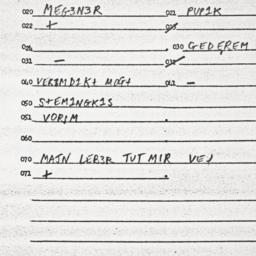 020 MEG3N3R 021 PUP1K
022 +
031 - 030 GEDEREM
040 VERBMD1K+ MOG+ 041 -
050 S+EM1NGK1S
052 VORIM
060
070 MAJN LEB3R TUT MIR VEJ
072 +